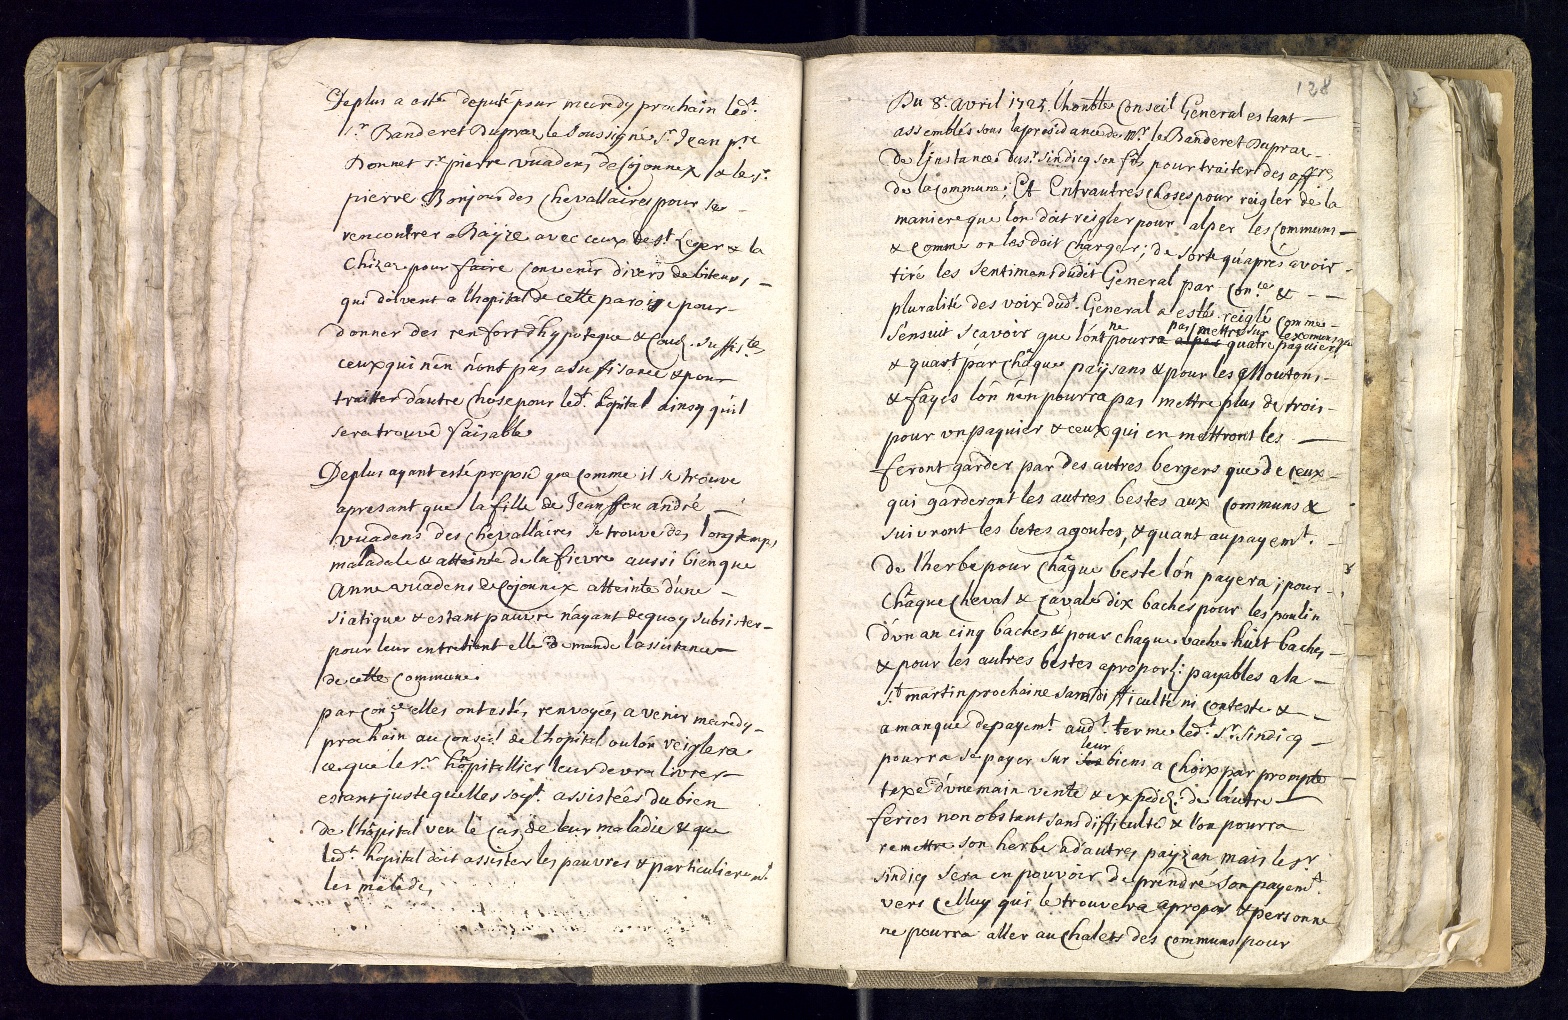 De plus a esté deputé pour mecredy prochain led.t
S.r Banderet Duprae, le Soussigné, S.r Jean p.re
Donnet S.r pierre vuadens de Cojonnex & le S.r
pierre Bonjour des Chevallaires pour se
rencontrer a Bayse avec ceux de S.t Leger & la
Chizaz pour faire Convenir divers debiteurs,
qui doivent a lhopital de cette paroisse pour
donner des renfort d'hypoteque & Cauõ. suffis.te,
ceux qui n'en n'ont pas a sufisance & pour
traitter d'autre chose pour led.t hôpital ainsy qu'il
sera trouvé faisable
De plus ayant esté proposé que Comme il se trouve
apresant que la fille de Jean ffeu andré
vuadens des Chevallaires se trouve des longtemps
malade & atteinte de la fievre aussi bien que
Anne vuadens de Cojonnex atteinte d'une
siatique & estant pauvre n'ayant de quoy subsister
pour leur entretient elle demande lassistance
de cette Commune.
par Conõe elles ont estés renvoyées a venir mecredy
prochain au Conseil de l'hopital ou lón reiglera
ce que le S.r hôpitallier leur devra livrer
estant juste quelles soÿt. assistées du bien
de l'hôpital veu le Cas de leur maladie & que
led.t hopital doit assister les pauvres & particulierem.t
les malades
128
Du 8.e avril 1725 l'honnble Conseil General estant
assemblés sous la presidance de m.r le Banderet Duprae
de l'instance du S.r Sindicq son fils pour traiter des affres
de la Commune; Et Entrautres choses pour reigler de la
maniere que lon doit reigler pour alper les Communs
& Comme on les doit Charger; de sorte qu'aprés avoir
tiré les sentiment dudit General par Con.ce &
pluralité des voix dud.t General a estés reiglé Comme
s'ensuit Sçavoir que lón ne pourra alper pas mettre sur les Communs que quatre paquiers
& quart par Châque paÿsans & pour les Moutons
& fayes lón n'en pourra pas mettre plus de trois
pour vn paquier & ceux qui en mettront les
feront garder par des autres bergers que de ceux
qui garderont les autres bestes aux Communs &
suivront les betes agoutes, & quant au payem.t
de l'herbe pour châque beste lón payera; pour
Châque Cheval & Cavale dix baches pour les poulin
d'vn an cinq baches & pour chaque vache huit baches
& pour les autres bestes a proporõ: payables a la
S.t martin prochaine sans difficulté ni conteste &
a manque de payem.t aud.t terme led.t S.r Sindicq
pourra se payer sur ses leur biens a choix par prompte
taxe d'vne main vente & expediõ. de l'autre
feries non obstant sans difficulté & l'on pourra
remettre son herbe a d'autres payzan mais le S.r
Sindicq sera en pouvoir de prendre son payem.t
vers Celluy qui le trouvera apropos & personne
ne pourra aller au Chalets des Communs pour